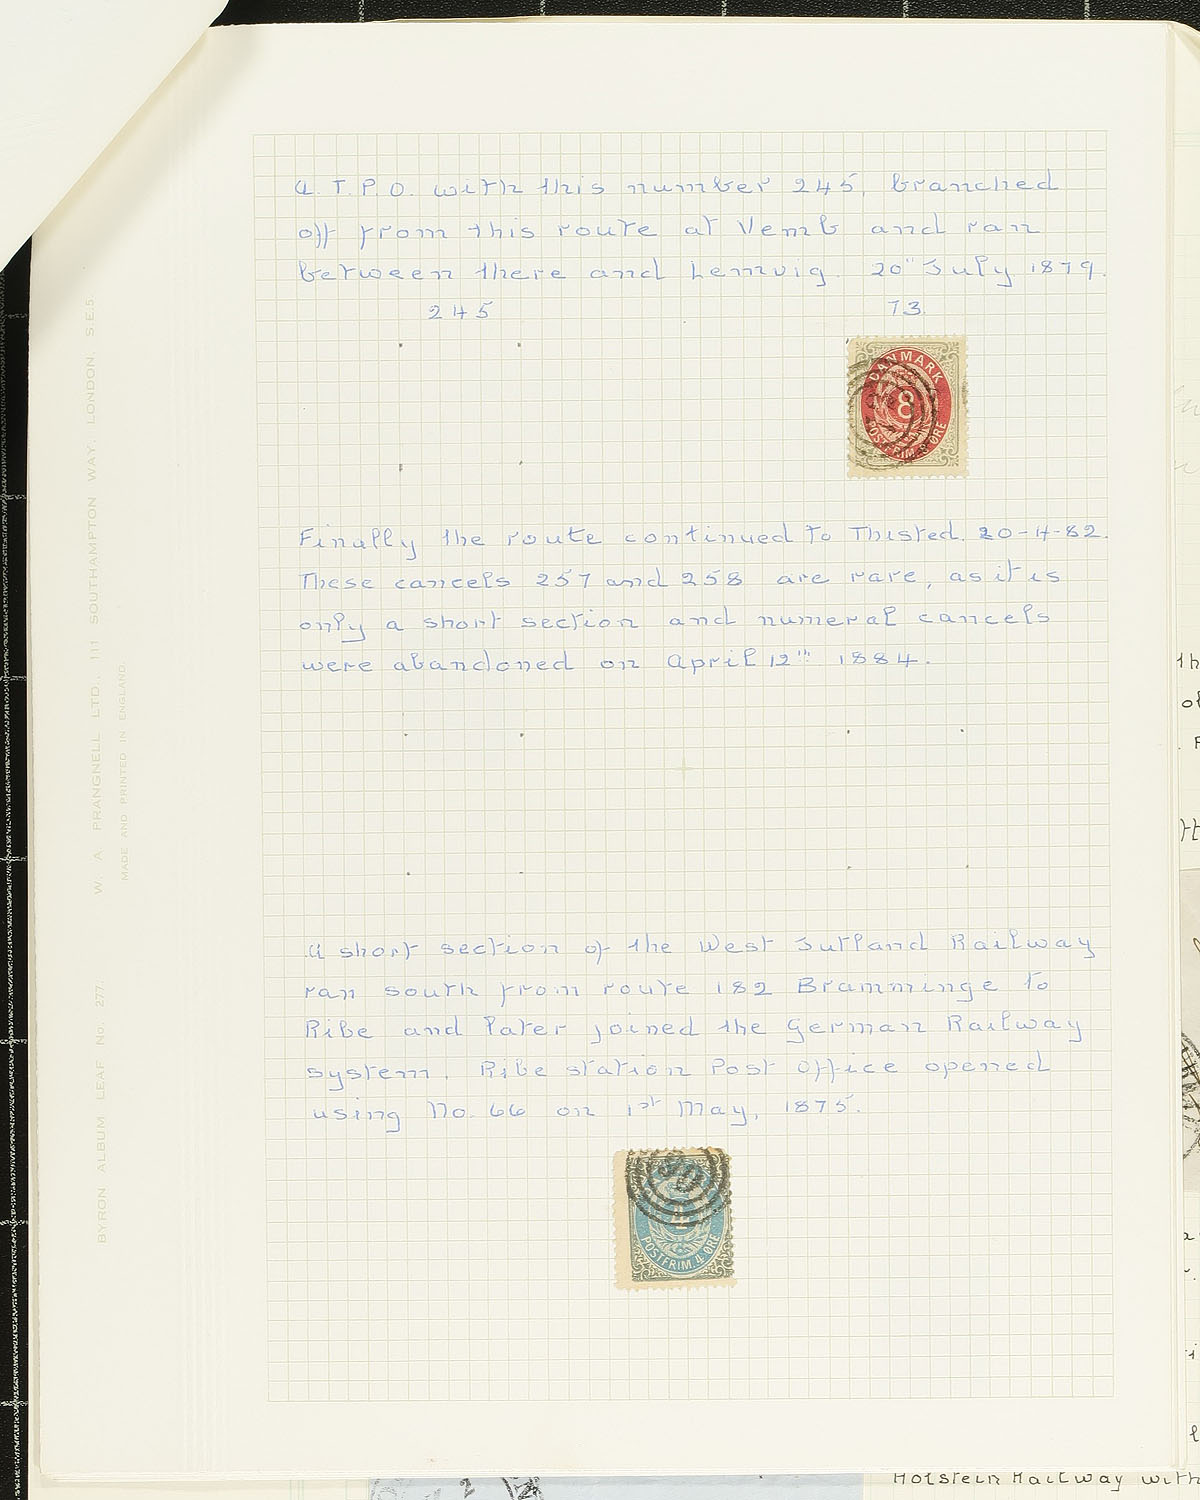 A. T.P.O. with this number 245, branched
off from this route at Vemb and ran
between there and Lemvig. 20" July 1879.
245 73.
DANMARK
8
POSTFRIM. 8 ØRE
Finally the route continued to Thisted. 20-4-82.
These cancels 257 and 258 are rare, as it is
only a short section and numeral cancels
were abandoned on april 12th 1884.
A short section of the West Jutland Railway
ran south from route 182 Bramminge to
Ribe and later joined the German Railway
system. Ribe station Post Office opened
using No. 66 on 1st May, 1875.
4
POSTFRIM. 4 ØRE
W. A. PRANGNELL LTD., 111 SOUTHAMPTON WAY, LONDON S.E.5
MADE AND PRINTED IN ENGLAND.
BYRON ALBUM LEAF No. 277.
Holstein Railway with